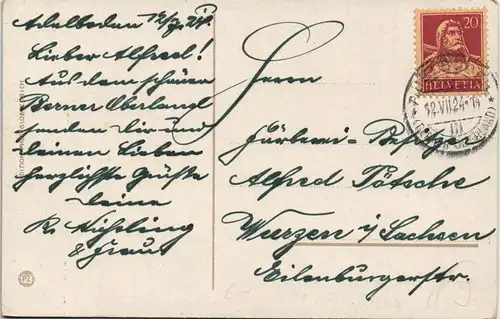 Adelboden 12/7. 24.
Lieber Alfred!
Aus dem schönen
Berner Oberland
senden Dir und
deinen Lieben
herzlichste Grüße
deine
R.
& Frau
Herrn
Färberei-Besitzer
Alfred Pötsche
Wurzen i/Sachsen
Eilenburgerstr.
20
HELVETIA
12.VII.24
PZ